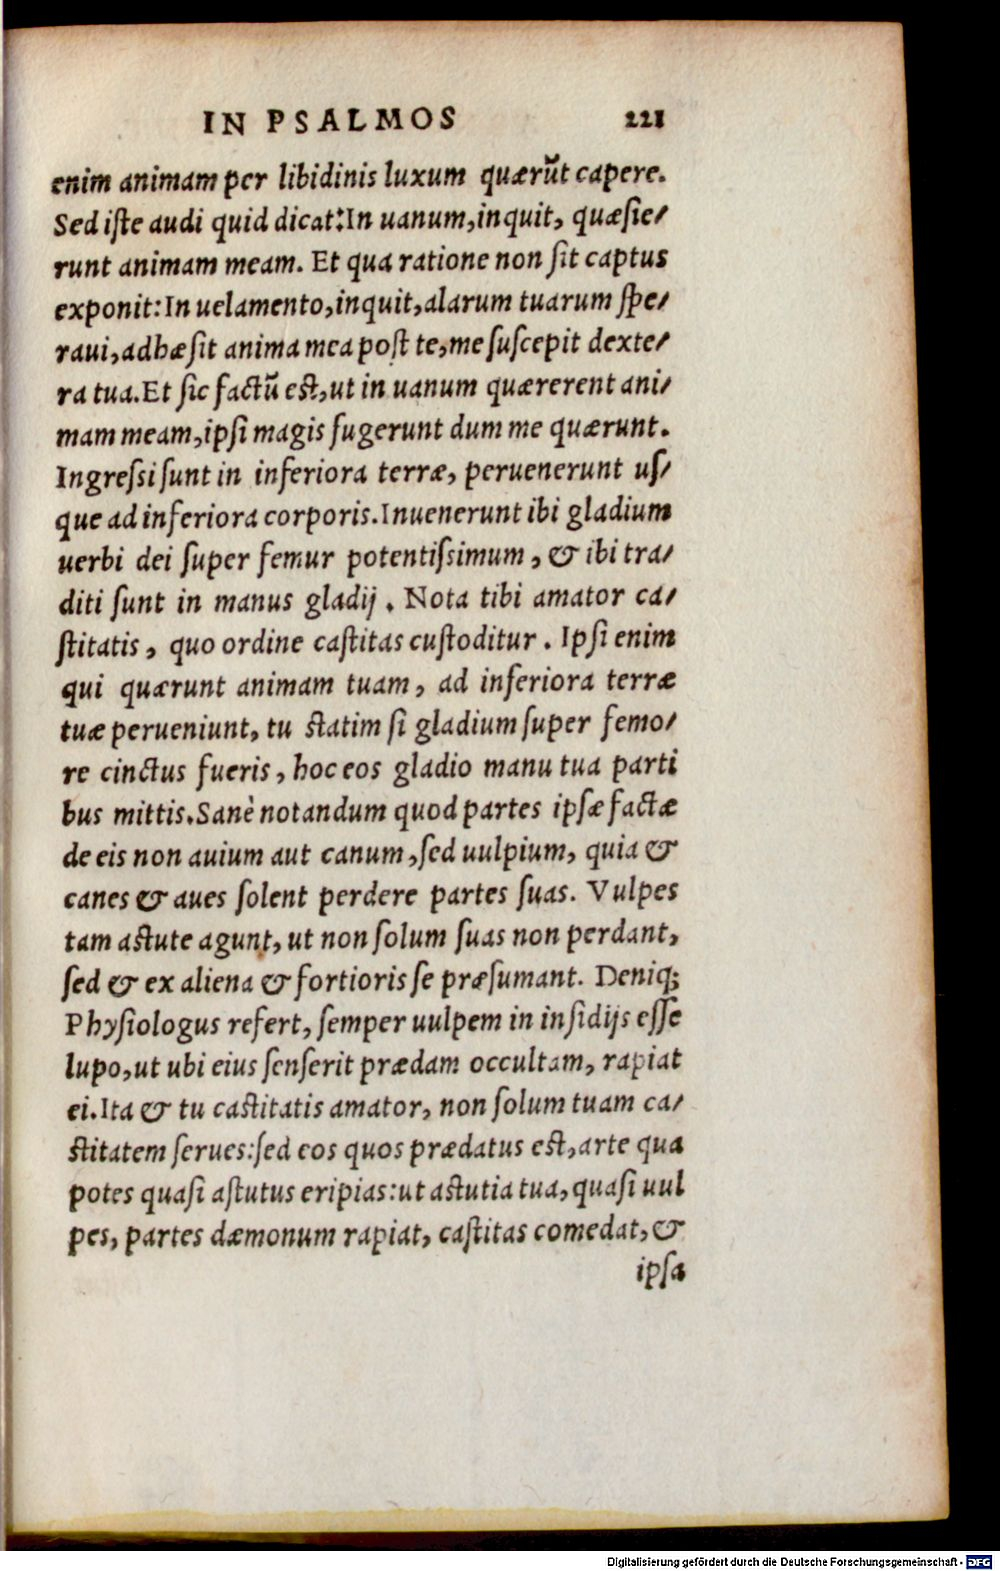 IN PSALMOS 221
enim animam per libidinis luxum quærūt capere.
Sed iſte audi quid dicat: In uanum, inquit, quæſie/
runt animam meam. Et qua ratione non ſit captus
exponit: In uelamento, inquit, alarum tuarum ſpe/
raui, adhæſit anima mea poſt te, me ſuſcepit dexte/
ra tua. Et ſic factū eſt, ut in uanum quærerent ani/
mam meam, ipſi magis fugerunt dum me quærunt.
Ingreſſi ſunt in inferiora terræ, peruenerunt uſ/
que ad inferiora corporis. Inuenerunt ibi gladium
uerbi dei ſuper femur potentiſſimum, & ibi tra/
diti ſunt in manus gladij. Nota tibi amator ca/
ſtitatis, quo ordine caſtitas cuſtoditur. Ipſi enim
qui quærunt animam tuam, ad inferiora terræ
tuæ perueniunt, tu ſtatim ſi gladium ſuper femo/
re cinctus fueris, hoc eos gladio manu tua parti
bus mittis. Sanè notandum quod partes ipſæ factæ
de eis non auium aut canum, ſed uulpium, quia &
canes & aues ſolent perdere partes ſuas. Vulpes
tam aſtute agunt, ut non ſolum ſuas non perdant,
ſed & ex aliena & fortioris ſe præſumant. Deniq;
Phyſiologus refert, ſemper uulpem in inſidijs eſſe
lupo, ut ubi eius ſenſerit prædam occultam, rapiat
ei. Ita & tu caſtitatis amator, non ſolum tuam ca/
ſtitatem ſerues: ſed eos quos prædatus eſt, arte qua
potes quaſi aſtutus eripias: ut aſtutia tua, quaſi uul
pes, partes dæmonum rapiat, caſtitas comedat, &
ipſa
Digitalisierung gefördert durch die Deutsche Forschungsgemeinschaft - DFG